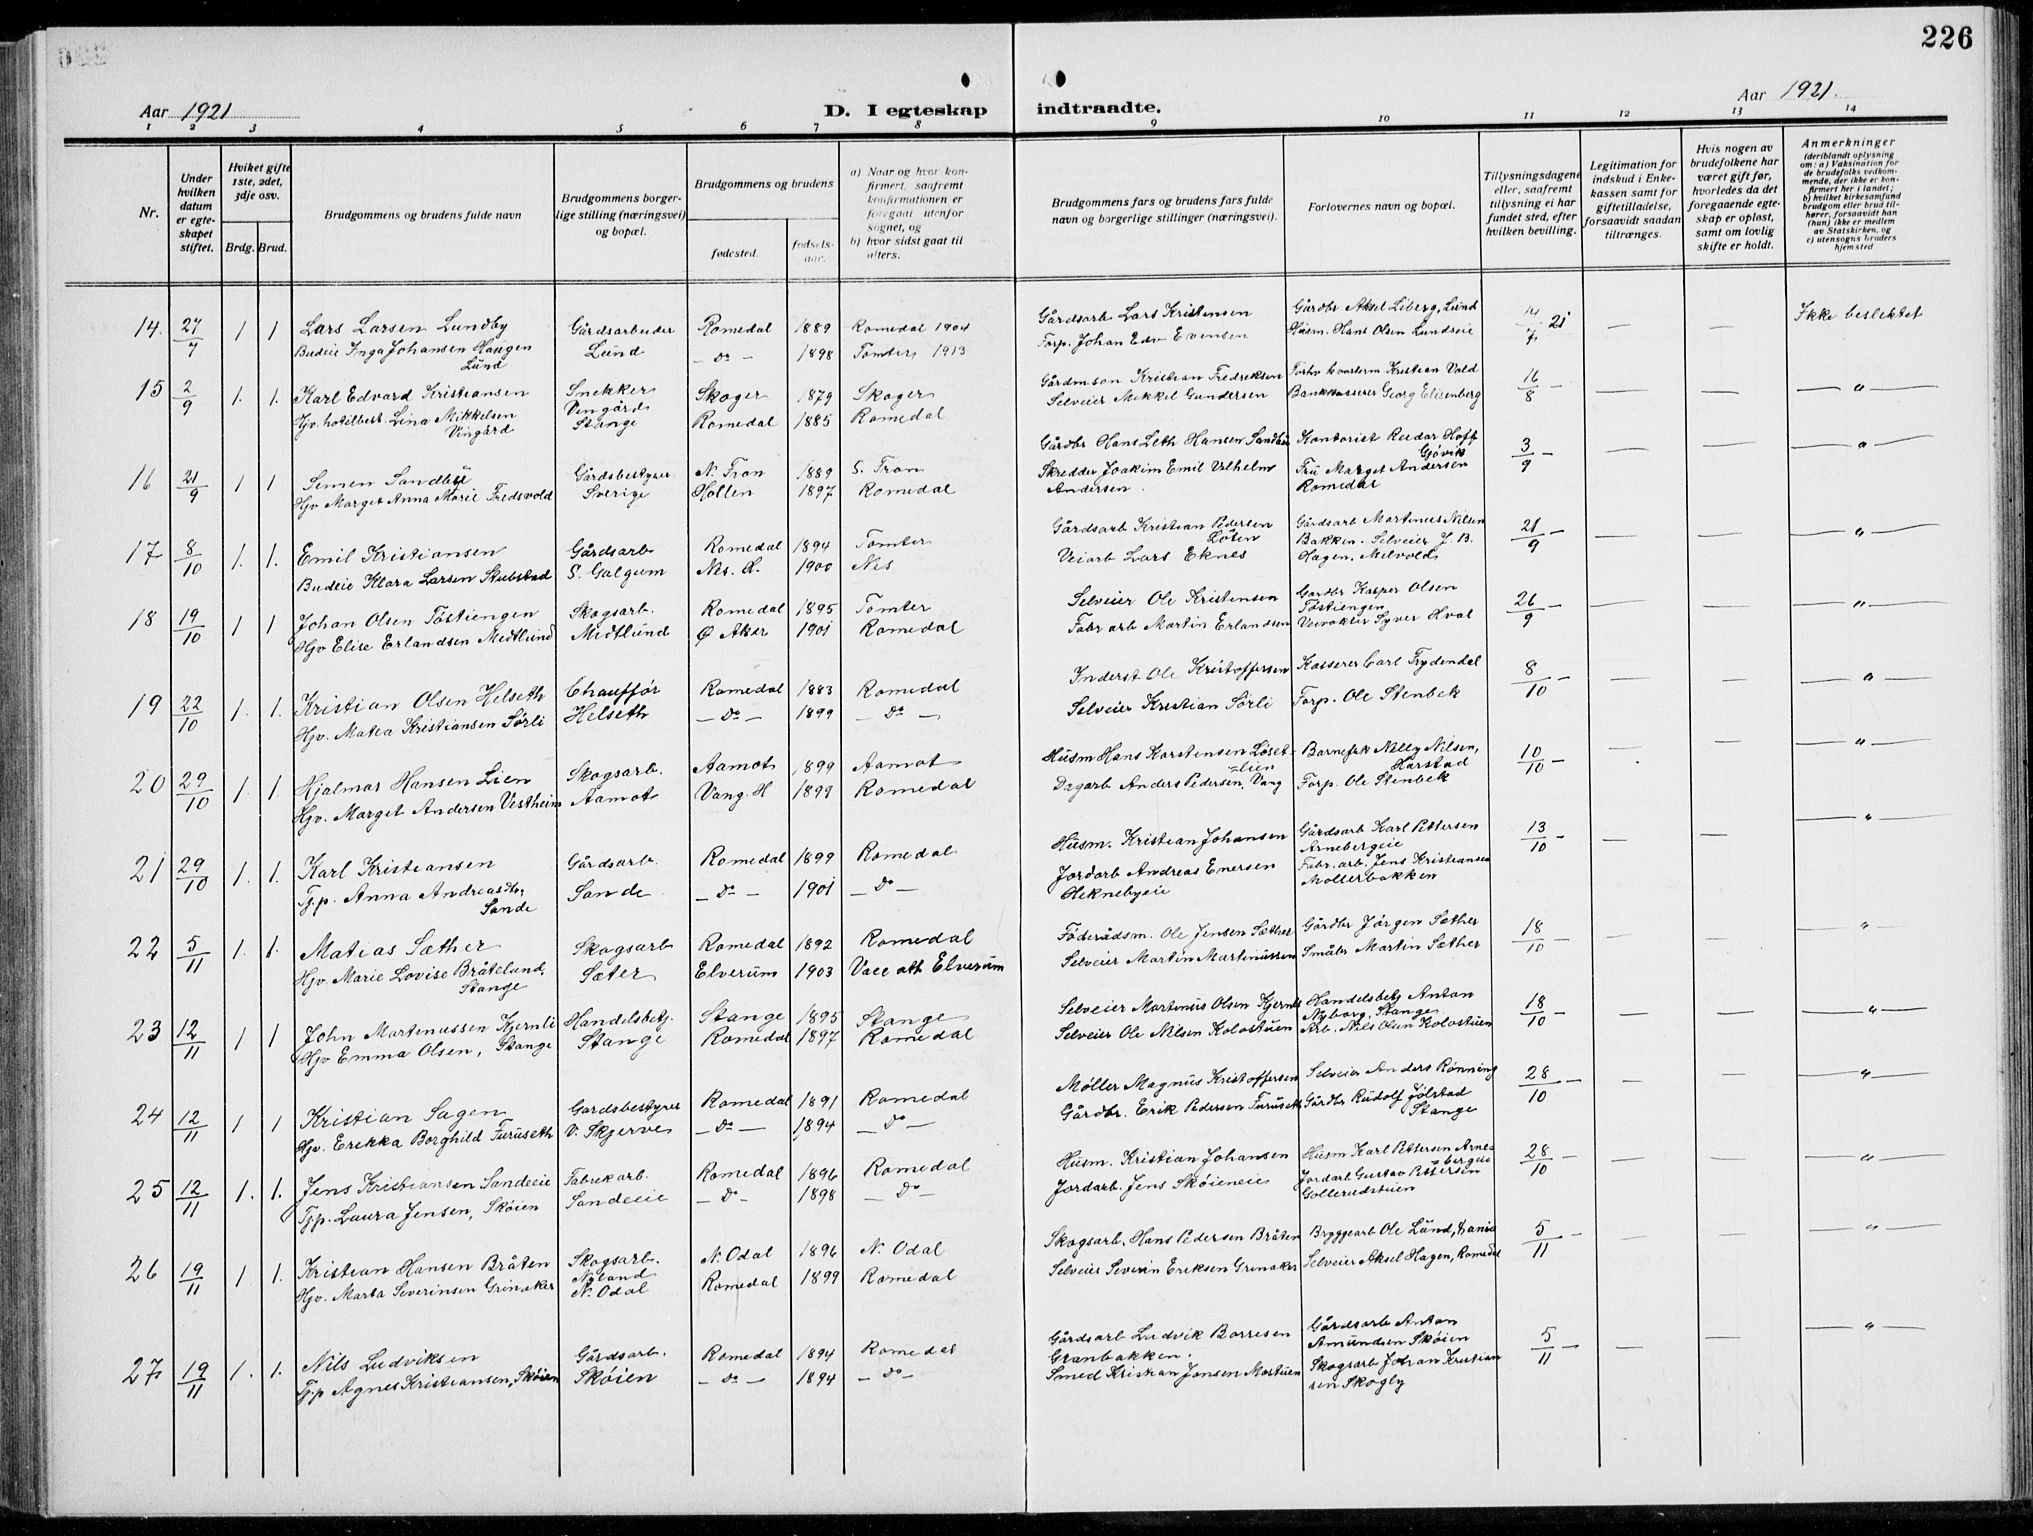 226
Aar 1921
D. I egteskap indtraadte.
Aar 1921.
1 2 3 4 5 6 7 8 9 10 11 12 13 14
Nr.
Under hvilken datum er egteskapet stiftet.
Hvilket gifte 1ste, 2det, 3dje osv.
Brdg. Brud.
Brudgommens og brudens fulde navn
Brudgommens borgerlige stilling (næringsvei) og bopæl.
Brudgommens og brudens
fødested.
fødselsaar.
a) Naar og hvor konfirmert, saafremt konfirmationen er foregaat utenfor sognet, og
b) hvor sidst gaat til alters.
Brudgommens fars og brudens fars fulde navn og borgerlige stillinger (næringsvei).
Forlovernes navn og bopæl.
Tillysningsdagene eller, saafremt tillysning ei har fundet sted, efter hvilken bevilling.
Legitimation for indskud i Enkekassen samt for giftetilladelse, forsaavidt saadan tiltrænges.
Hvis nogen av brudefolkene har været gift før, hvorledes da det foregaaende egteskap er opløst, samt om lovlig skifte er holdt.
Anmerkninger
(deriblandt oplysning om: a) Vaksination for de brudefolks vedkommende, der ikke er konfirmert her i landet; b) hvilket kirkesamfund brudgom eller brud tilhører, forsaavidt han (hun) ikke er medlem av Statskirken, og c) utensogns bruders hjemsted
14. 27/7 1 1 Lars Larsen Lundby Gårdsarbeider Romedal 1889 Romedal 1904 Gårdsarb Lars Kristensen Gårdbr Aksel Liberg, Lund 14/7 21 — — Ikke beslektet
Budeie Inga Johansen Haugen Lund Lund — Do — 1898 Tomter 1913 Forp. Johan Edv Evensen Husm. Hans Olsen Lundseie
15 2/9 1. 1. Karl Edvard Kristiansen Snekker Skoger 1879 Skoger Gårdm.søn Kristian Fredriksen Kristian Vold 16/8 — — — — " —
Hjv. hotelbest. Lina Mikkelsen Vingård Vingård Stange Romedal 1885 Romedal Selveier Mikkel Gundersen Bankkasserer Georg Elisenberg
16 21/9 1 1 Simen Sandbye Gårdsbestyrer N. Fron 1889 S. Fron Gårdbr Hans Leth Hansen Sandbu Kontorist Reidar Hoff Gjøvik 3/9 — — — — " —
Hjv Marget Anna Marie Fredsvold Sverige Hollen 1897 Romedal Skredder Joakim Emil Vilhelm Andersen. Fru Marget Andersen Romedal
17 8/10 1. 1. Emil Kristiansen Gårdsarb Romedal 1894 Tomter Gårdsarb Kristian Pedersen Løten Gårdsarb Martinus Nilsen Bakken. 21/9 — — — — " —
Budeie Klara Larsen Skubstad S. Galgum Nes. H. 1900 Nes Veiarb Lars Eknes Selveier J. B. Hagen. Melvold
18 19/10 1 1 Johan Olsen Tøstiengen Skogsarb. Romedal 1895 Tomter Selveier Ole Kristensen Gardbr Kasper Olsen Tøstiengen 26/9 — — — — " —
Hjv Elise Erlandsen Midtlund Midtlund Ø Aker 1901 Romedal Fabr arb Martin Erlandsen Veivokter Syver Hval
19 22/10 1. 1. Kristian Olsen Helseth Chauffør Romedal 1883 Romedal Inderst Ole Kristoffersen Kasserer Carl Frydendal 8/10 — — — — " —
Hjv. Matea Kristiansen Sørli Helseth — Do — 1899 — Do — Selveier Kristian Sørli Forp. Ole Stenbek
20 29/10 1. 1. Hjalmar Hansen Lien Skogsarb. Aamot 1899 Aamot Husm Hans Karstensen Løset-lien Barnefrk Nelly Nilsen, Harstad 10/10 — — — — " —
Hjv. Marget Andersen Vestheim Aamot Vang. H 1899 Romedal Dagarb Anders Pedersen, Vang Forp. Ole Stenbek
21 29/10 1. 1. Karl Kristiansen Gårdsarb. Romedal 1899 Romedal Husm. Kristian Johansen Gårdsarb Karl Pettersen Arnebergeie 13/10 — — — — " —
Tj.p. Anna Andreasdtr, Sande Sande — Do — 1901 — Do — Jordarb Andreas Enersen Oleknebyeie Fabr. arb. Jens Kristiansen Mollerbakken
22 5/11 1. 1. Matias Sæther Skogsarb Romedal 1892 Romedal Føderådsm. Ole Jensen Sæther Gårdbr Jørgen Sæther 18/10 — — — — " —
Hjv. Marie Lovise Bråtelund, Stange Sæter Elverum 1903 Vace att Elverum Selveier Martin Martinussen Småbr Martin Sæther
23 12/11 1 1 John Martinussen Kjernli Handelsbetj. Stange 1895 Stange Selveier Martinus Olsen Kjernli Handelsbetj Anton Nyborg, Stange 18/10 — — — — " —
Hjv Emma Olsen, Stange Stange Romedal 1897 Romedal Selveier Ole Nilsen Kolostuen Arb. Nils Olsen Kolostuen
24 12/11 1 1 Kristian Sagen Gardsbestyrer Romedal 1891 Romedal Møller Magnus Kristoffersen Selveier Anders Rønning 28/10 — — — — " —
Hjv. Erikka Borghild Furuseth V. Skjerve — Do — 1894 — Do — Gårdbr. Erik Pedersen Furuseth Gårdbr Rudolf Jølstad Stange
25 12/11 1. 1. Jens Kristiansen Sandeeie Fabrikarb. Romedal 1896 Romedal Husm. Kristian Johansen Husm Karl Pettersen Arnebergeie 28/10 — — — — " —
Tj.p. Laura Jensen, Skøien Sandeeie — Do — 1898 — Do — Jordarb. Jens Skøieneie Jordarb Gustav Pettersen Gollerudstuen
26 19/11 1 1. Kristian Hansen Bråten Skogsarb. N. Odal 1896 N. Odal Skogsarb. Hans Pedersen Bråten Bryggearb Ole Lund, Kr.ania 5/11 — — — — " —
Hjv. Marta Severinsen Grinaker Nyland N. Odal Romedal 1899 Romedal Selveier Severin Eriksen Grinaker Selveier Aksel Hagen, Romedal
27 19/11 1. 1. Nils Ludviksen Gårdsarb. Romedal 1894 Romedal Gårdsarb Ludvik Borresen Granbakken. Gårdsarb Anton Amundsen Skøien 5/11 — — — — " —
Tj.p Agnes Kristiansen, Skøien Skøien — Do — 1894 — Do — Smed Kristian Jonsen Mostuen Skogsarb Johan Kristiansen Skogly